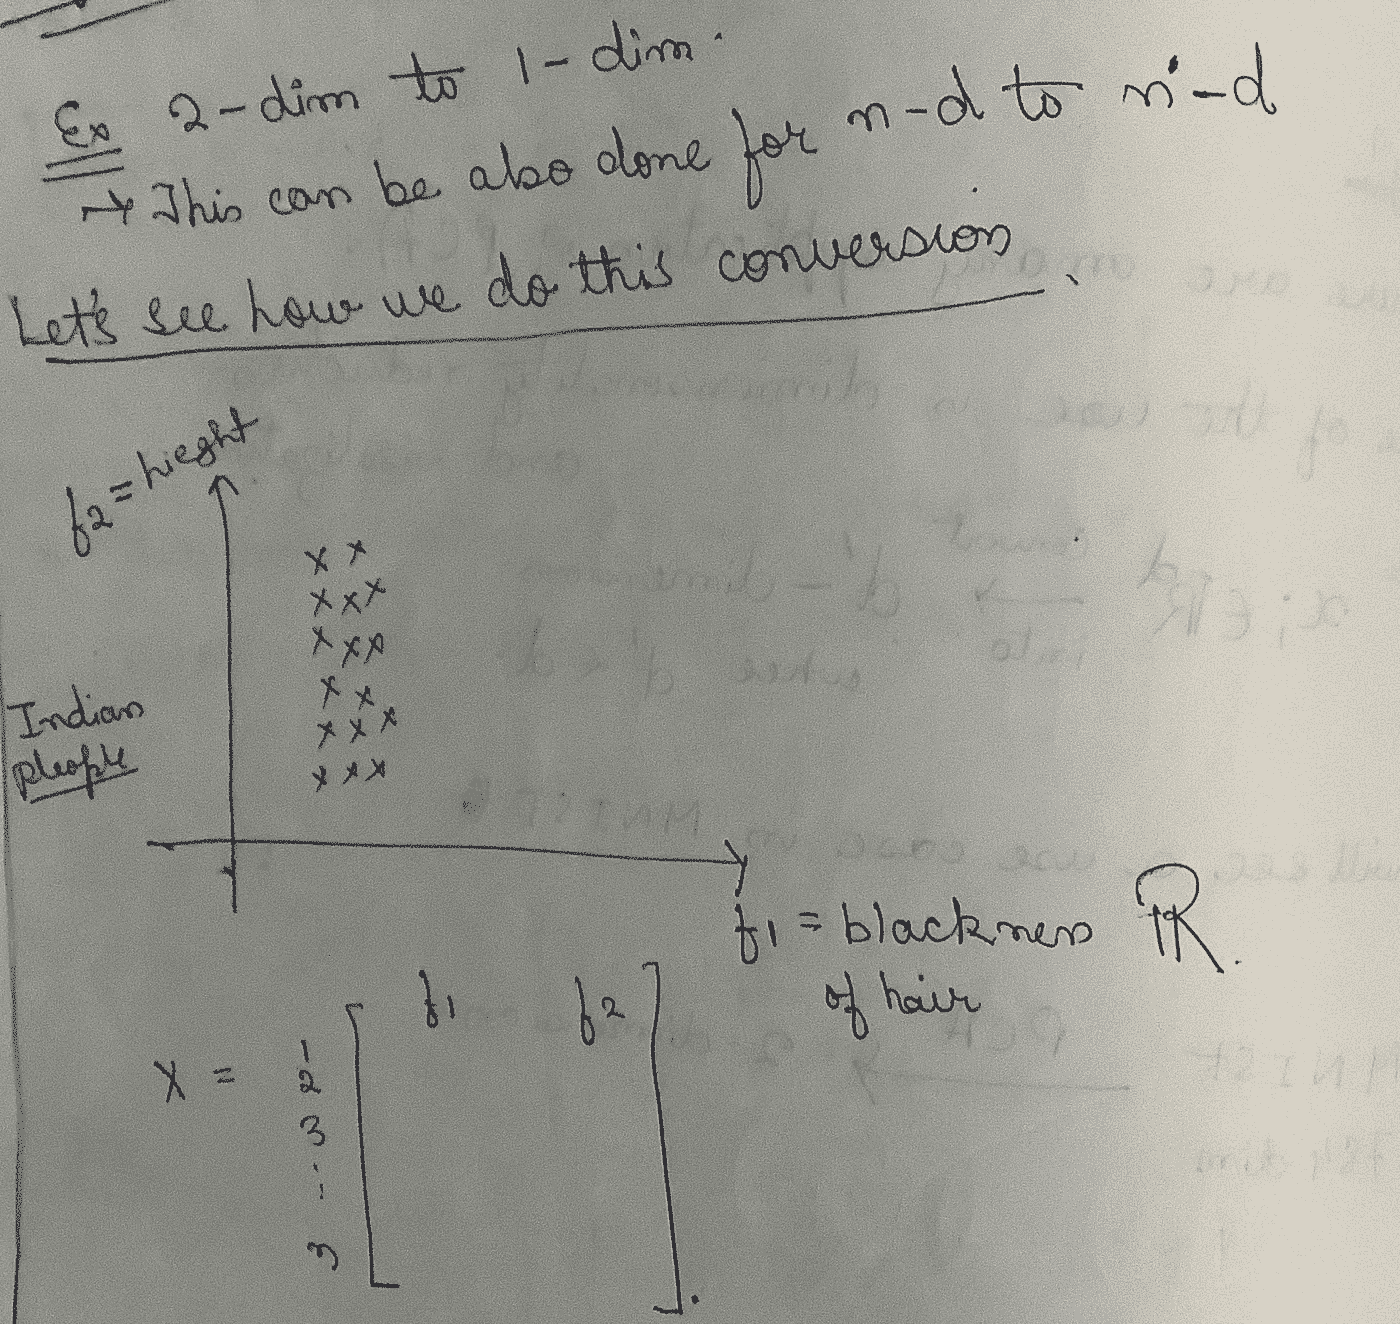 Ex 2-dim to 1-dim.
→ This can be also done for n-d to n'-d
Let's see how we do this conversion.
f2 = hieght
Indian
pleople
f1 = blackness
of hair
ℝ.
f1 f2
X =
1
2
3
n